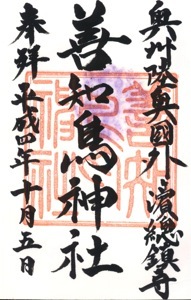 奥州陸奥國外ヶ濱總鎮守
善知鳥神社
奉拝 平成四年十月五日